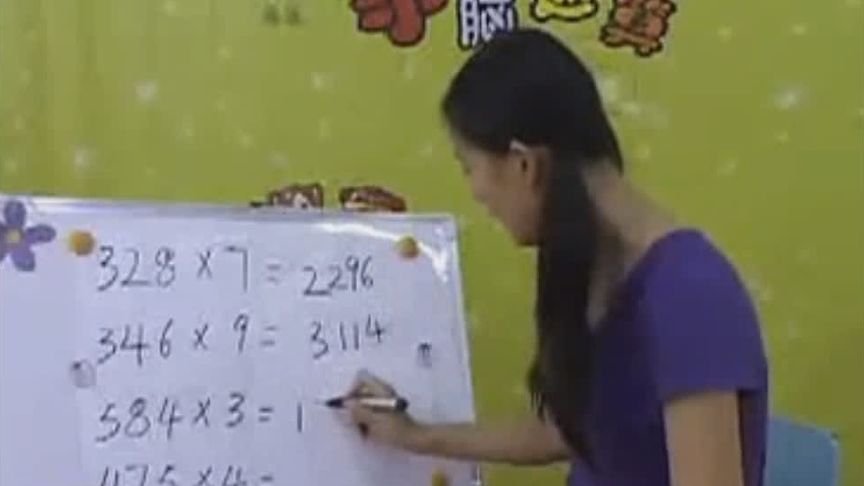 脑
328×7=2296
346×9=3114
584×3=1
475×4=